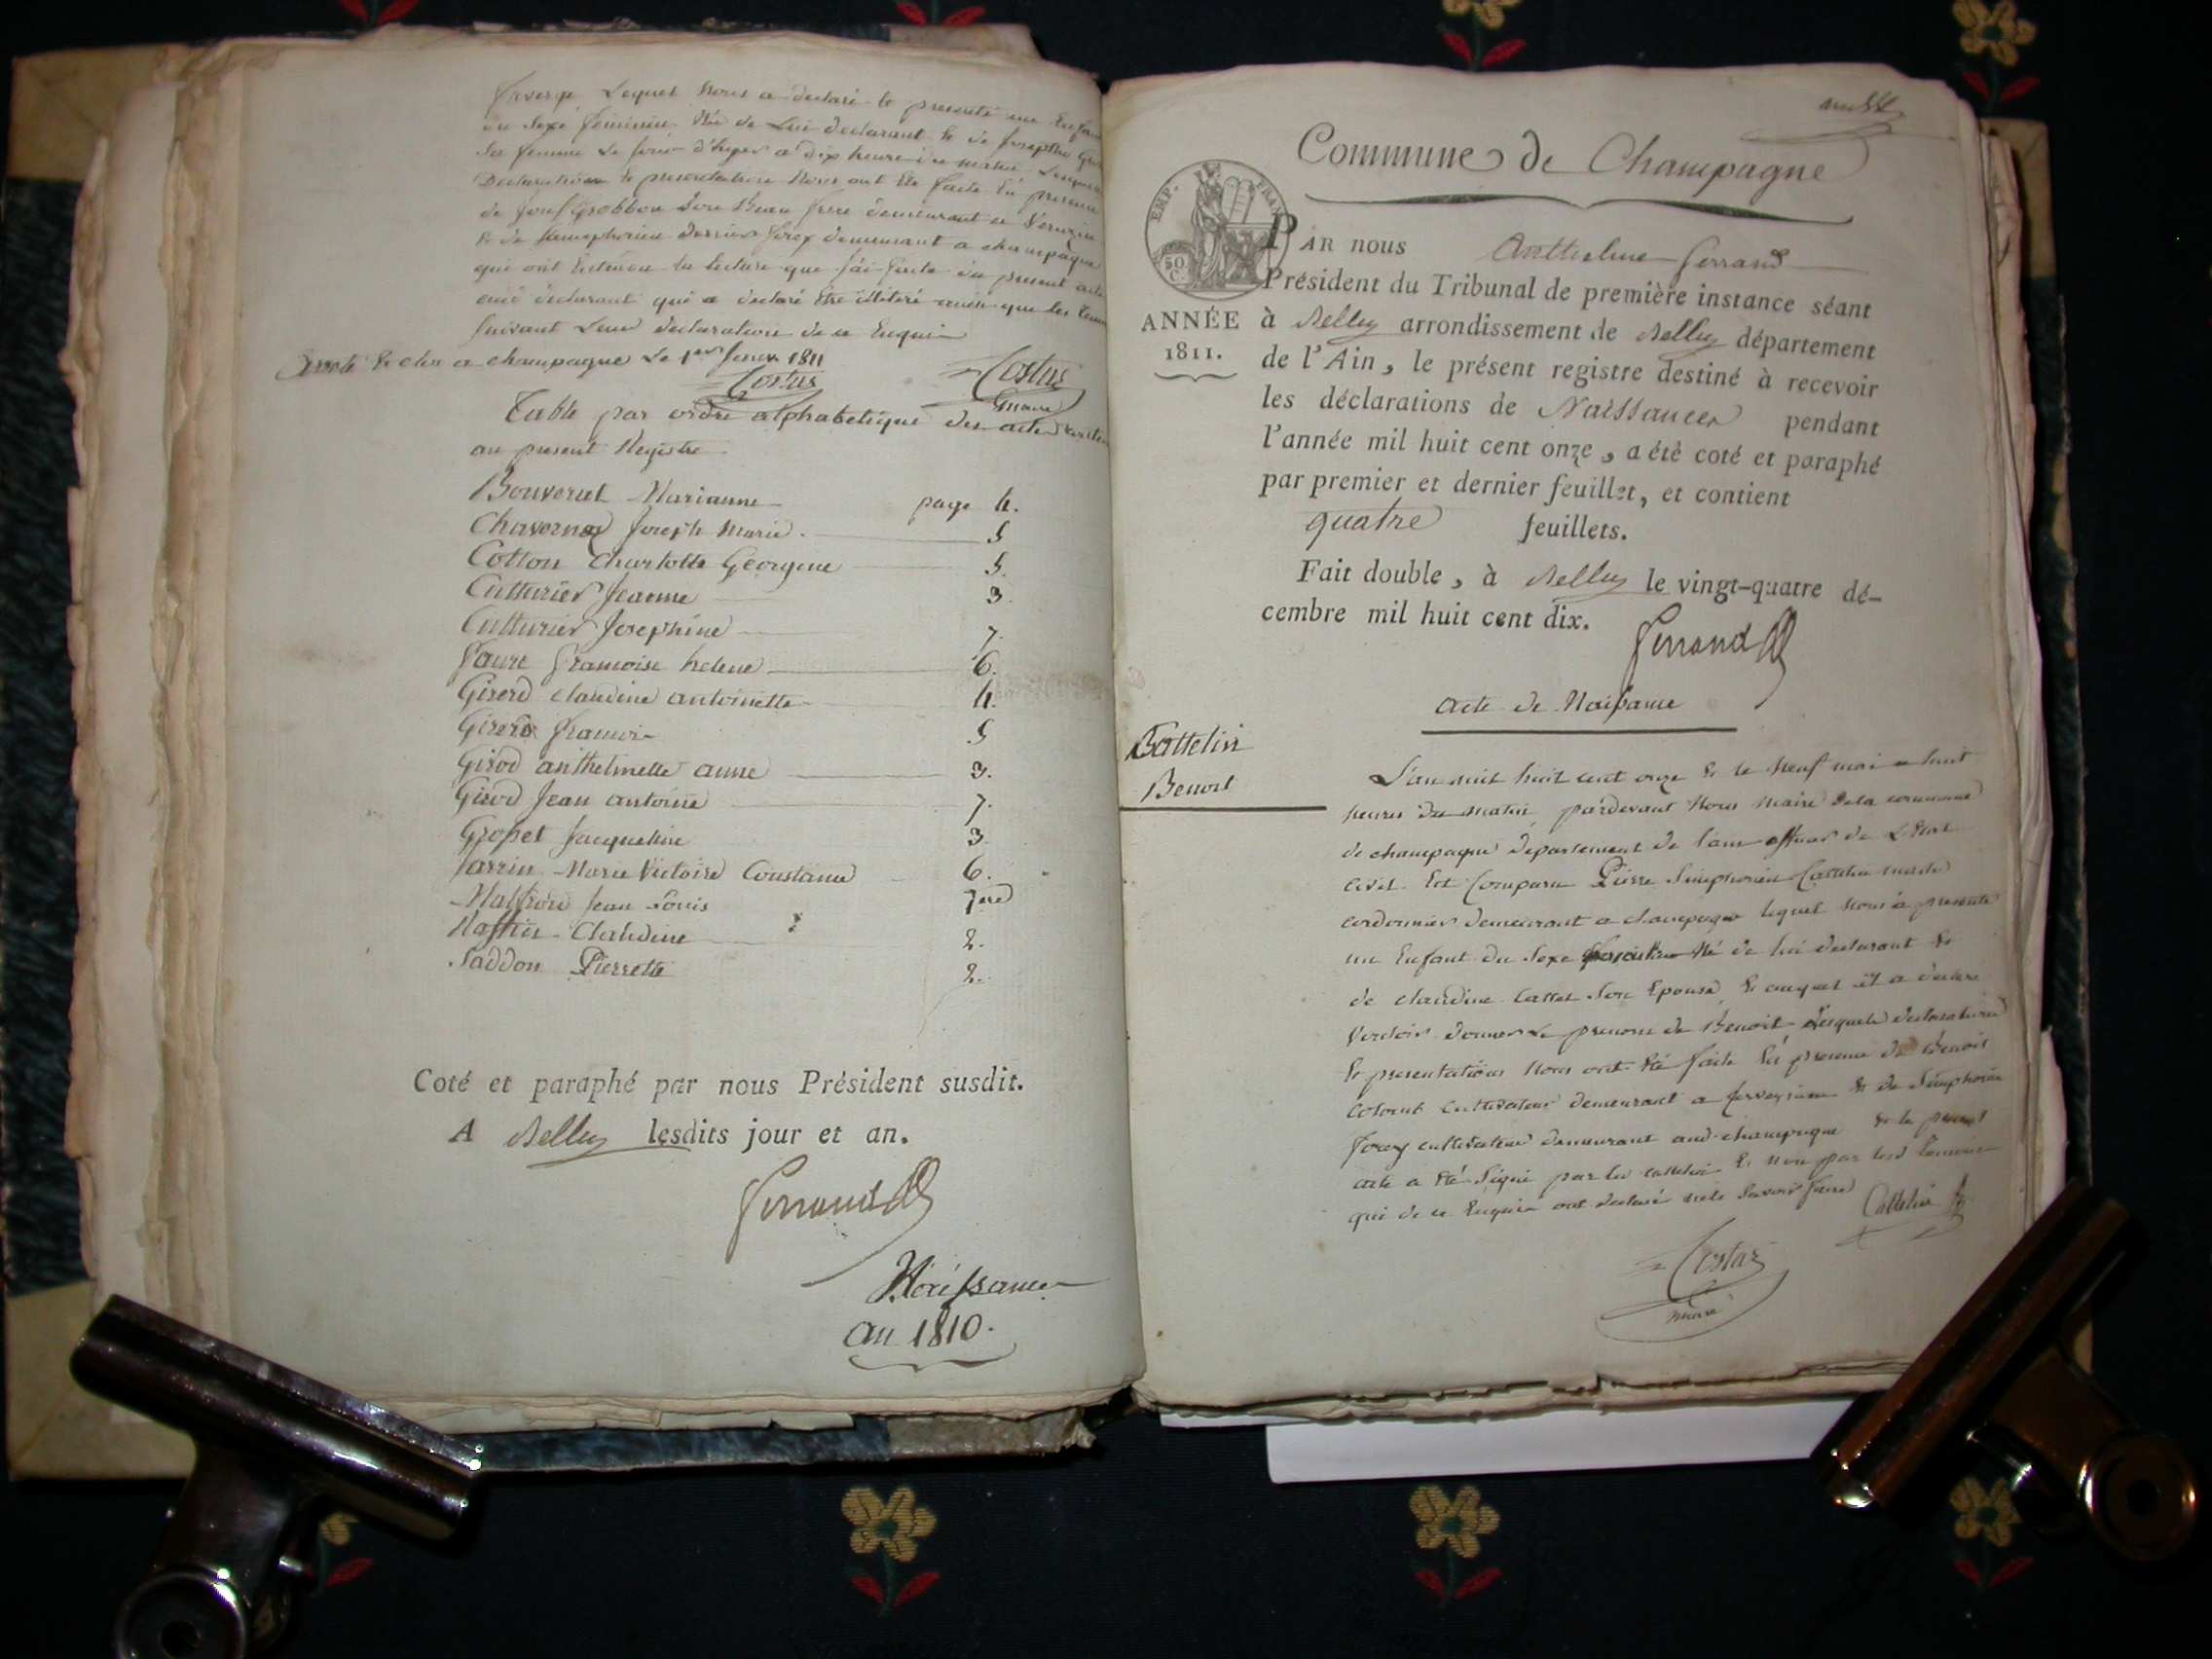 Lequel nous a declaré & presenté un Enfan
du Sexe feminin Née de Lui declarant & de Josephte
Sa femme Le jour d'hyer a dix heure du matin, Lesquel
Declaration & presentation Nous ont été faite En presence
de Son Beau frere demeurant a
& de Simphorien Forex demeurant a champagne
qui ont Entendu la lecture que j'ai faite du present acte
declarant qui a declaré être illiteré ainsi que les
Suivant Leur declaration de ce Enquis
Arreté & clos a champagne Le 1er Janer 1811
Costaz Costaz
maire
Table par ordre alphabetique des actes
au present Registre
Bouveret Marianne page 4.
Joseph Marie. 5
Cotton Charlotte Georgene 5.
Cutturier Jeanne 3.
Cutturier Josephine 7.
Faure francoise helene 6.
Girerd claudine antoinette 4.
Girerd francois 5
Girod anthelmette anne 3.
Girod Jean antoine 7.
Grosset Jacqueline 3.
Jarrin Marie Victoire Constance 6.
Jean Louis 1ere
Claudine 2.
Saddon Pierrette 2.
Coté et paraphé par nous Président susdit.
A Belley lesdits jour et an.
Ferrand
Naissances
an 1810.
Commune de Champagne
EMP. FRAN
50 C.
PAR nous Anthelme Ferrand
Président du Tribunal de première instance séant
ANNÉE à Belley arrondissement de Belley département
1811. de l'Ain, le présent registre destiné à recevoir
les déclarations de Naissances pendant
l'année mil huit cent onze, a été coté et paraphé
par premier et dernier feuillet, et contient
quatre feuillets.
Fait double, à Belley le vingt-quatre dé-
cembre mil huit cent dix.
Ferrand
acte de Naissance
Cattelin
Benoit
L'an mil huit cent onze & le Neuf mai a huit
heures du matin, pardevant Nous maire de la commune
de champagne departement de l'ain officier de L'Etat
civil Est Comparu Pierre Simphorien Cattelin
cordonnier demeurant a champagne lequel nous a presenté
un Enfant du Sexe Né de lui declarant &
de claudine Son Epouse, & auquel il a declaré
Vouloir donner Le prenom de Benoit Lesquels declaration
& presentation Nous ont été faite En presence de Benoit
cultivateur demeurant a & de Simphorien
Forex cultivateur demeurant aud champagne & le present
acte a été Signé par led cattelin & non par les d Temoins
qui de ce Enquis ont declaré ne le Savoir faire Cattelin
Costaz
maire